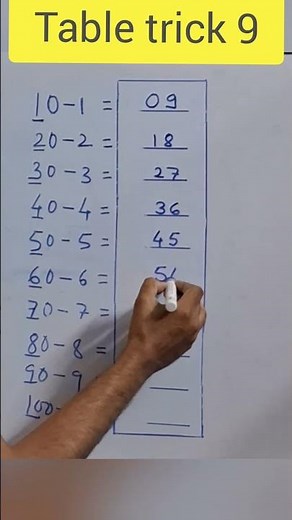 Table trick 9
10-1 = 09
20-2 = 18
30-3 = 27
40-4 = 36
50-5 = 45
60-6 = 54
70-7 =
80-8 =
90-9
100-